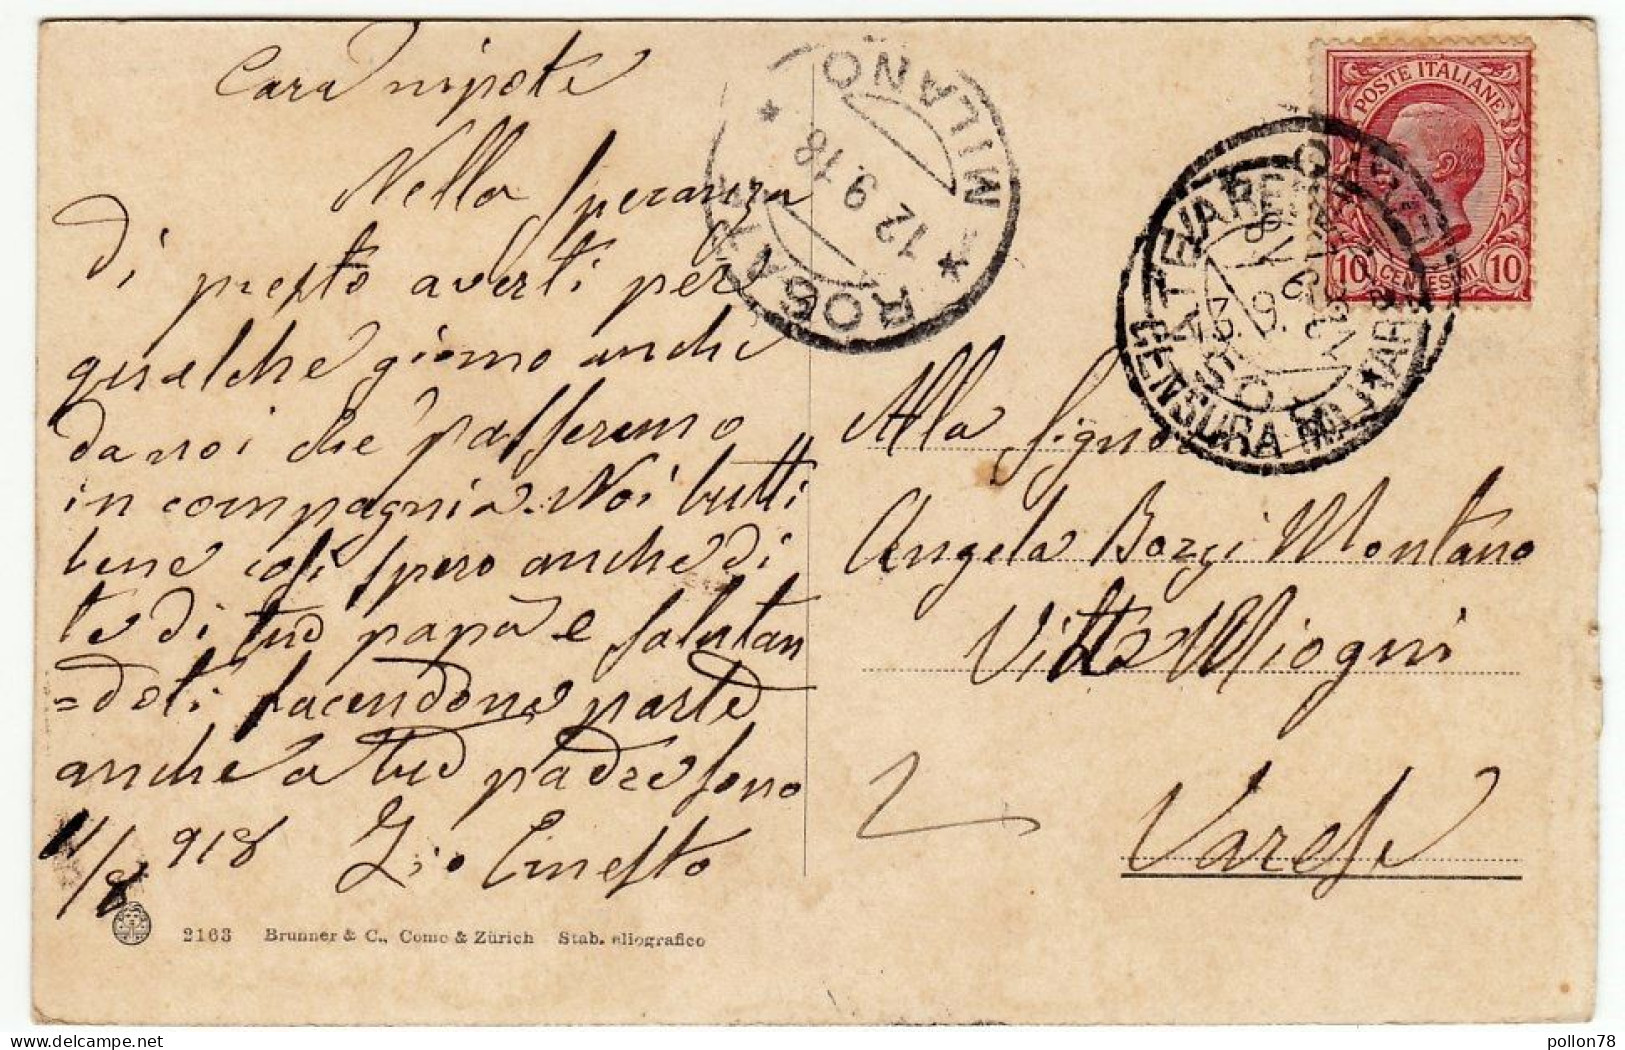 Cara nipote
Nella speranza
di presto averti per
qualche giorno anche
da noi che passeremo
in compagnia. Noi tutti
bene così spero anche di
te di tuo papà e salutan
=doti facendone parte
anche a tuo padre sono
11/8 918 Zio Ernesto
2163 Brunner & C., Como & Zürich Stab. eliografico
MILANO
12 9.18
ROSATE
POSTE ITALIANE
10 CENTESIMI 10
VARESE
CENSURA MILITARE
Alla Signora
Angela Bozzi Montano
Villa Miogni
Varese
pollon78